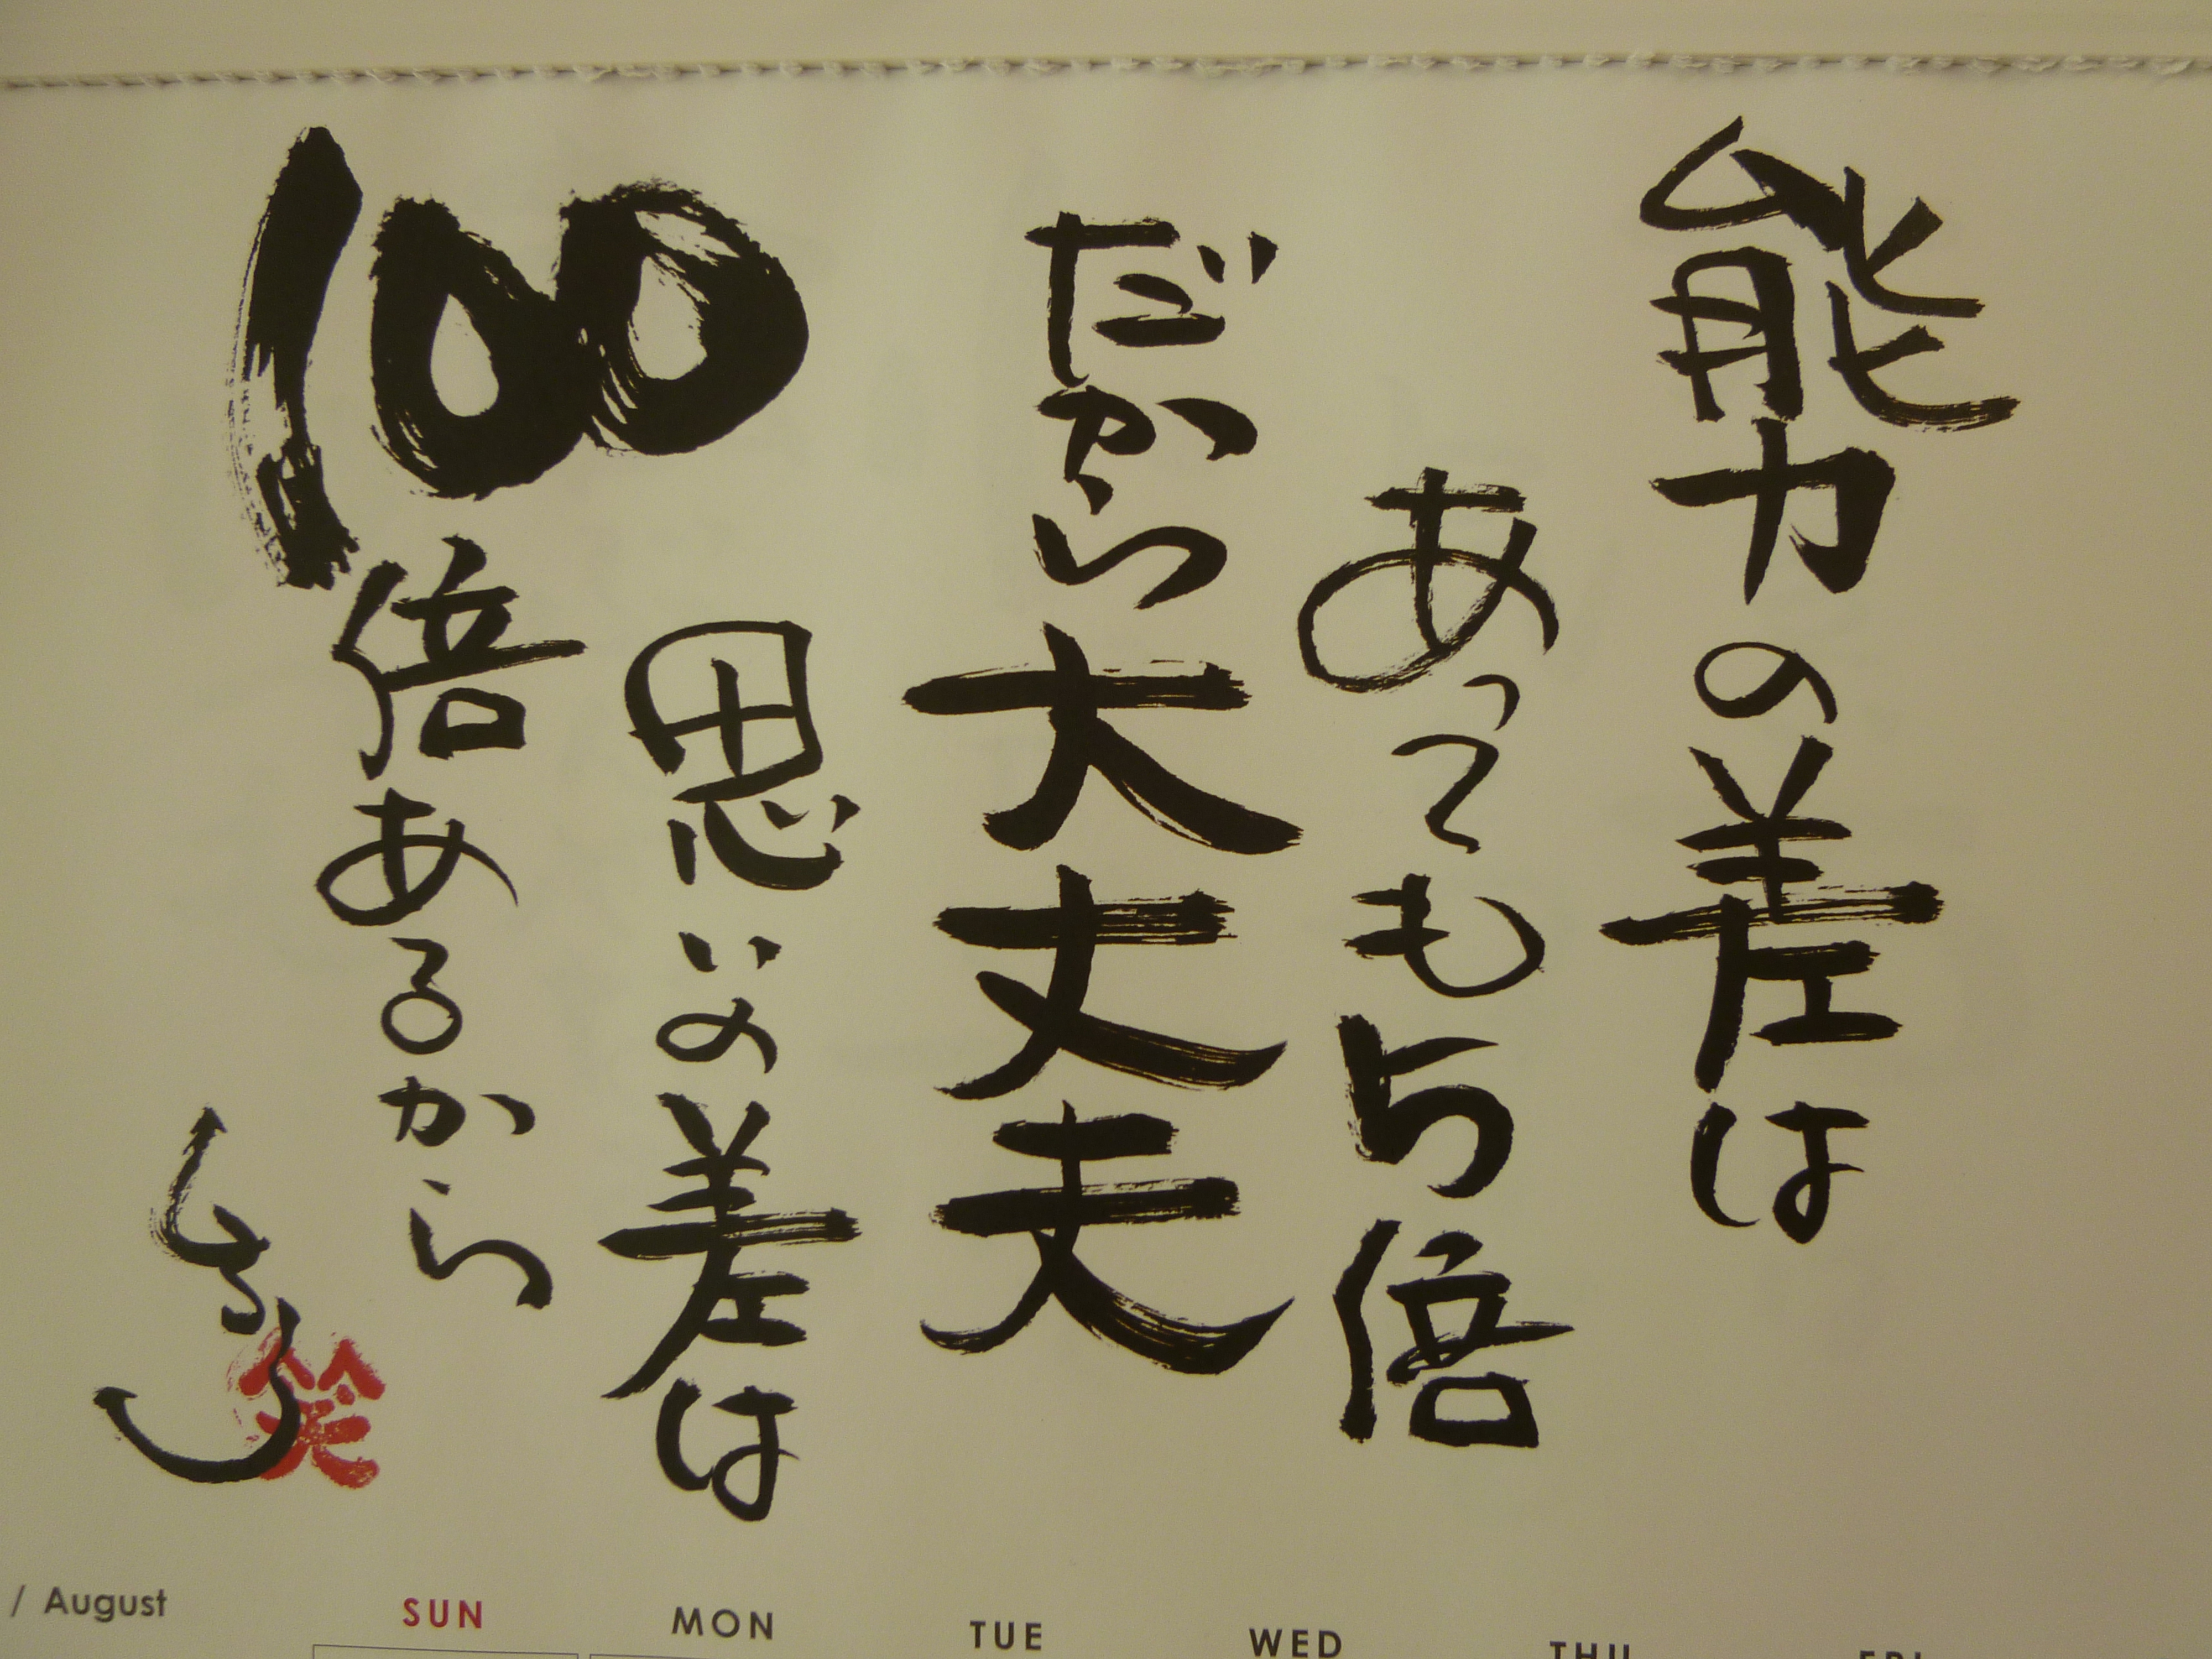 能力の差は
あっても5倍
だから大丈夫
思いの差は
100倍あるから
笑
/ August
SUN MON TUE WED THU FRI